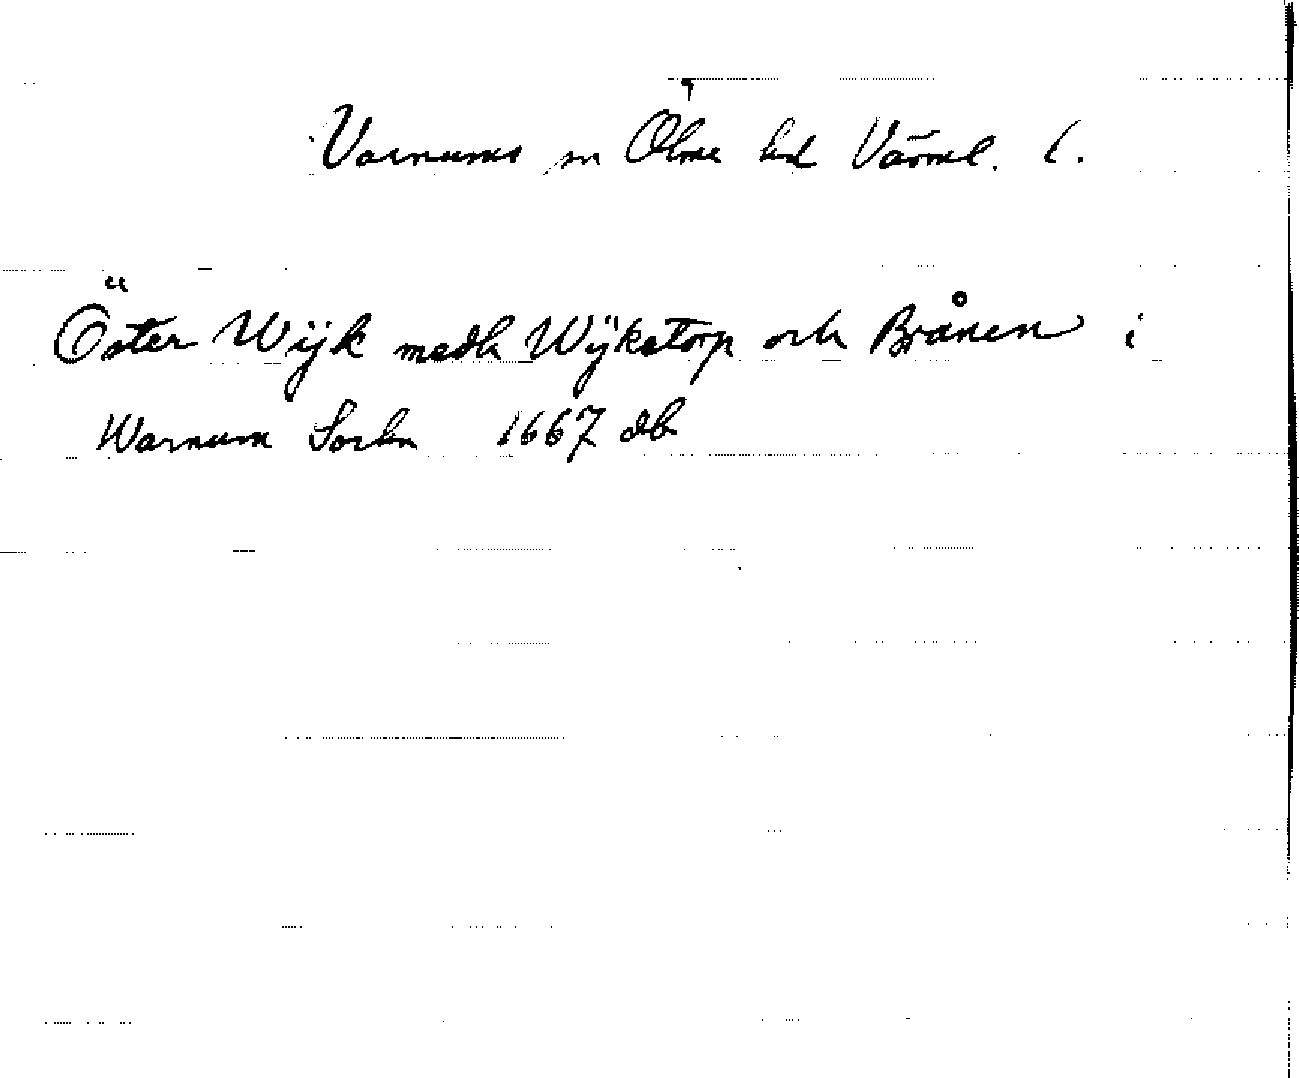 Varnums sn Ölme hd Värml. l.
Öster Wijk medh Wijkstorp och Brånen i
Warnum Sochn 1667 db